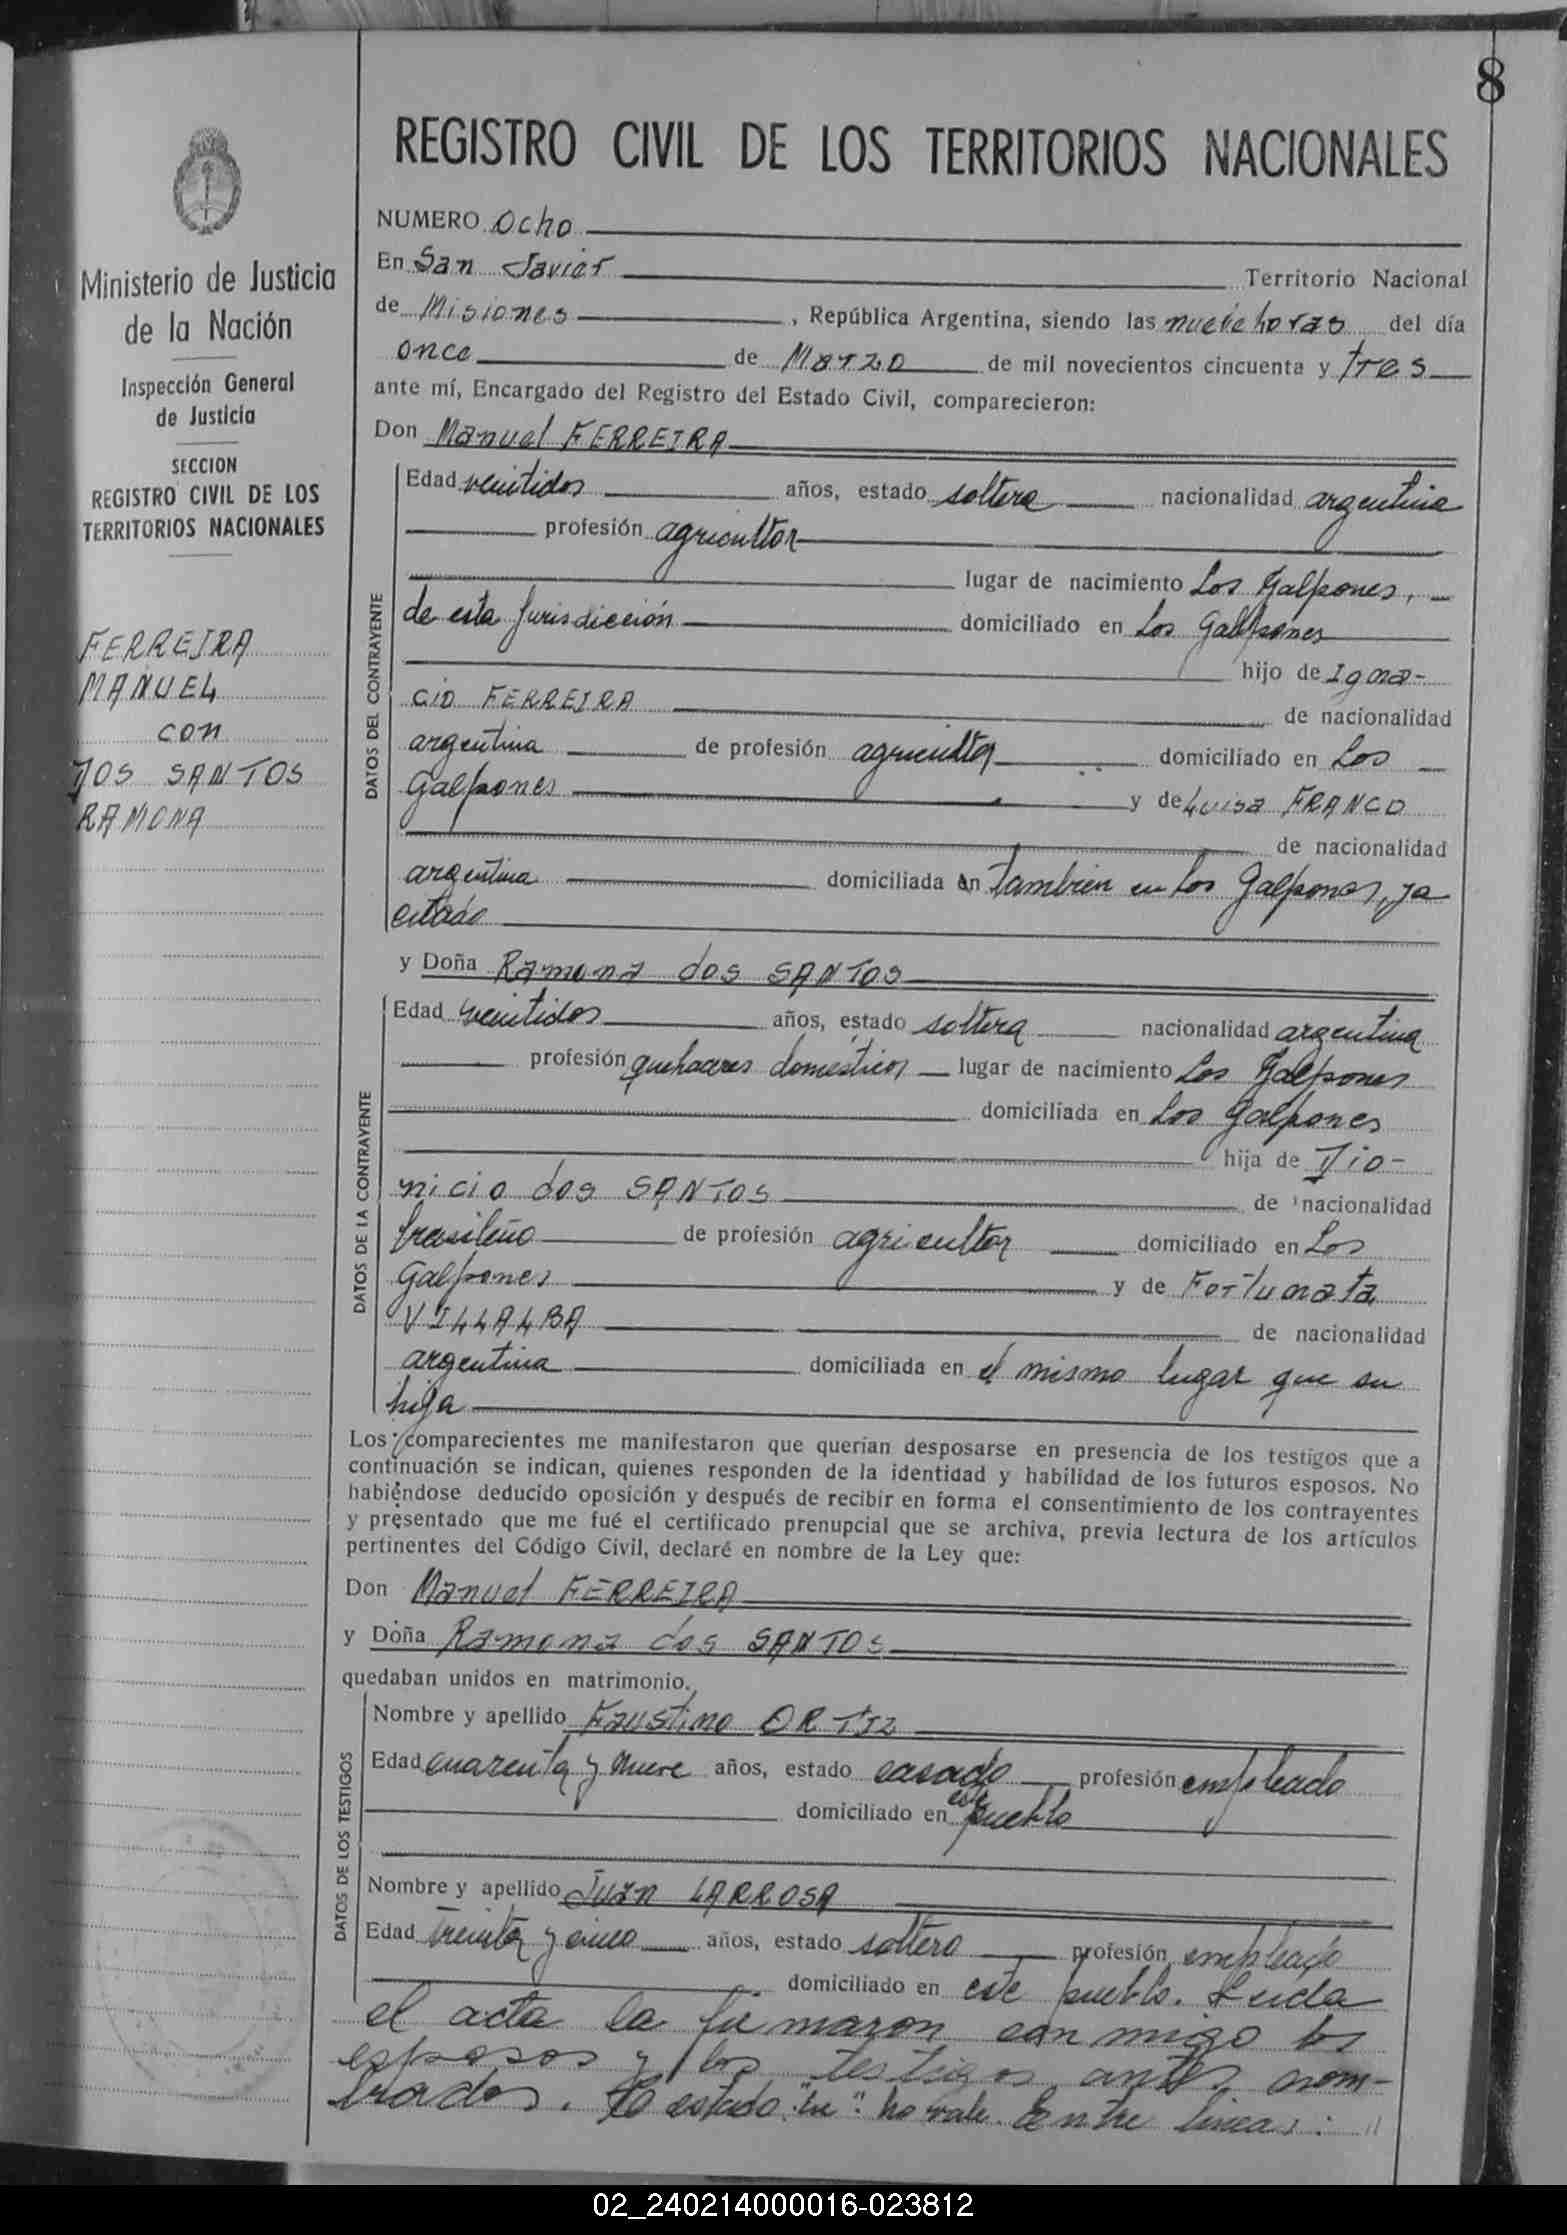 8
REGISTRO CIVIL DE LOS TERRITORIOS NACIONALES
Ministerio de Justicia
de la Nación
Inspección General
de Justicia
SECCION
REGISTRO CIVIL DE LOS
TERRITORIOS NACIONALES
FERREIRA
MANUEL
con
DOS SANTOS
RAMONA
NUMERO Ocho
En San Javier Territorio Nacional
de Misiones, República Argentina, siendo las nueve horas del día
once de Marzo de mil novecientos cincuenta y tres
ante mí, Encargado del Registro del Estado Civil, comparecieron:
Don Manuel FERREIRA
DATOS DEL CONTRAYENTE
Edad veintidos años, estado soltero nacionalidad argentina
profesión agricultor
lugar de nacimiento Los Galpones,
de esta Jurisdicción domiciliado en Los Galpones
hijo de Igna-
cio FERREIRA de nacionalidad
argentina de profesión agricultor domiciliado en Los
Galpones y de Luisa FRANCO
de nacionalidad
argentina domiciliada en tambien en Los Galpones, ya
citado
y Doña Ramona dos SANTOS
DATOS DE LA CONTRAYENTE
Edad veintidos años, estado soltera nacionalidad argentina
profesión quehaceres domésticos lugar de nacimiento Los Galpones
domiciliada en Los Galpones
hija de Dio-
nicio dos SANTOS de nacionalidad
brasileño de profesión agricultor domiciliado en Los
Galpones y de Fortunata
VILLALBA de nacionalidad
argentina domiciliada en el mismo lugar que su
hija
Los comparecientes me manifestaron que querían desposarse en presencia de los testigos que a
continuación se indican, quienes responden de la identidad y habilidad de los futuros esposos. No
habiéndose deducido oposición y después de recibir en forma el consentimiento de los contrayentes
y presentado que me fué el certificado prenupcial que se archiva, previa lectura de los artículos
pertinentes del Código Civil, declaré en nombre de la Ley que:
Don Manuel FERREIRA
y Doña Ramona dos SANTOS
quedaban unidos en matrimonio.
DATOS DE LOS TESTIGOS
Nombre y apellido Faustino ORTIZ
Edad cuarenta y nueve años, estado casado profesión empleado
domiciliado en este pueblo
Nombre y apellido Juan LARROSA
Edad treinta y cinco años, estado soltero profesión empleado
domiciliado en este pueblo. Leida
el acta la firmaron conmigo los
esposos y los testigos antes nom-
brados. no vale. Entre lineas: "
02_240214000016-023812